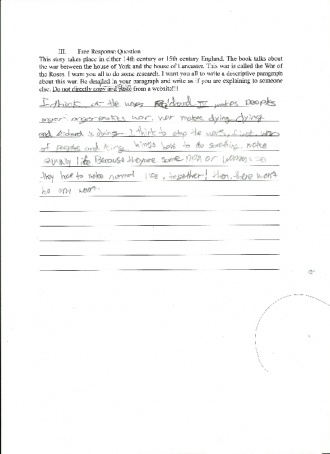 III. Free Response Question
This story takes place in either 14th century or 15th century England. The book talks about
the war between the house of York and the house of Lancaster. This war is called the War of
the Roses. I want you all to do some research. I want you all to write a descriptive paragraph
about this war. Be detailed in your paragraph and write as if you are explaining to someone
else. Do not directly copy and paste from a website!!!
I think the wars Richard III makes people
war. war makes dying dying
and is dying. I think to stop the war, first
of people and King. kings have to do something, make
life Because they are same man or woman so
they have to make normal life, together! then, there won't
be any war.